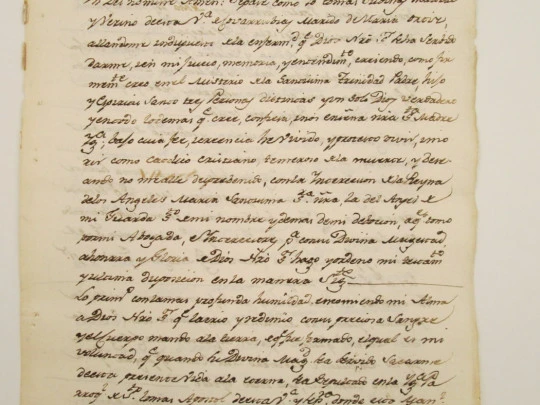 En del nombre Amen: Sepase como yo Tomas
y Vecino de esta V.ª Marido de Maria
allandome indispuesto de la enfermd. q.e Dios Nrô S.r ha Servido
darme, y en mi juicio, memoria, y entendim.to creiendo, como firmem.te
creo en el Misterio de la Sanctisima Trinidad Padre, hijo
y Espiritu Santo tres Personas distintas y un solo Dios Verdadero
y en todo lo demas q.e cree, confiesa, i nos enseña nrâ S.ta Madre
Yg.ª bajo cuia fee, i creencia he Vivido, y protexto vivir, i morir
como catolico cristiano, temeroso de la muerte, y deseando
no me alle desprebenido, con la Intercesion de la Reyna
de los Angeles Maria Sanctisima S.ra nrâ, la del Angel de
mi Guarda S.to de mi nombre y demas de mi debocion, a q.e tomo
por mi Abogada, e Intercesora p.ª con su Divina Magestad
a honrra y Gloria de Dios Nrô S.r hago y ordeno mi testam.to
y ultima disposicion en la manera Sig.te
Lo prim.o con tamas profunda humildad, encomiendo mi Alma
a Dios Nrô S.r q.e la crio, y redimio con su preciosa Sangre
y el cuerpo mando a la tierra, de q.e fue formado, el qual es mi
voluntad, q.e quando he Divina Mag.d sea Servido Sacarme
de esta presente Vida a la eterna, sea Sepultado en la Yg.ª Parroq.l
de S.to Tomas Apostol de esta V.ª donde soy